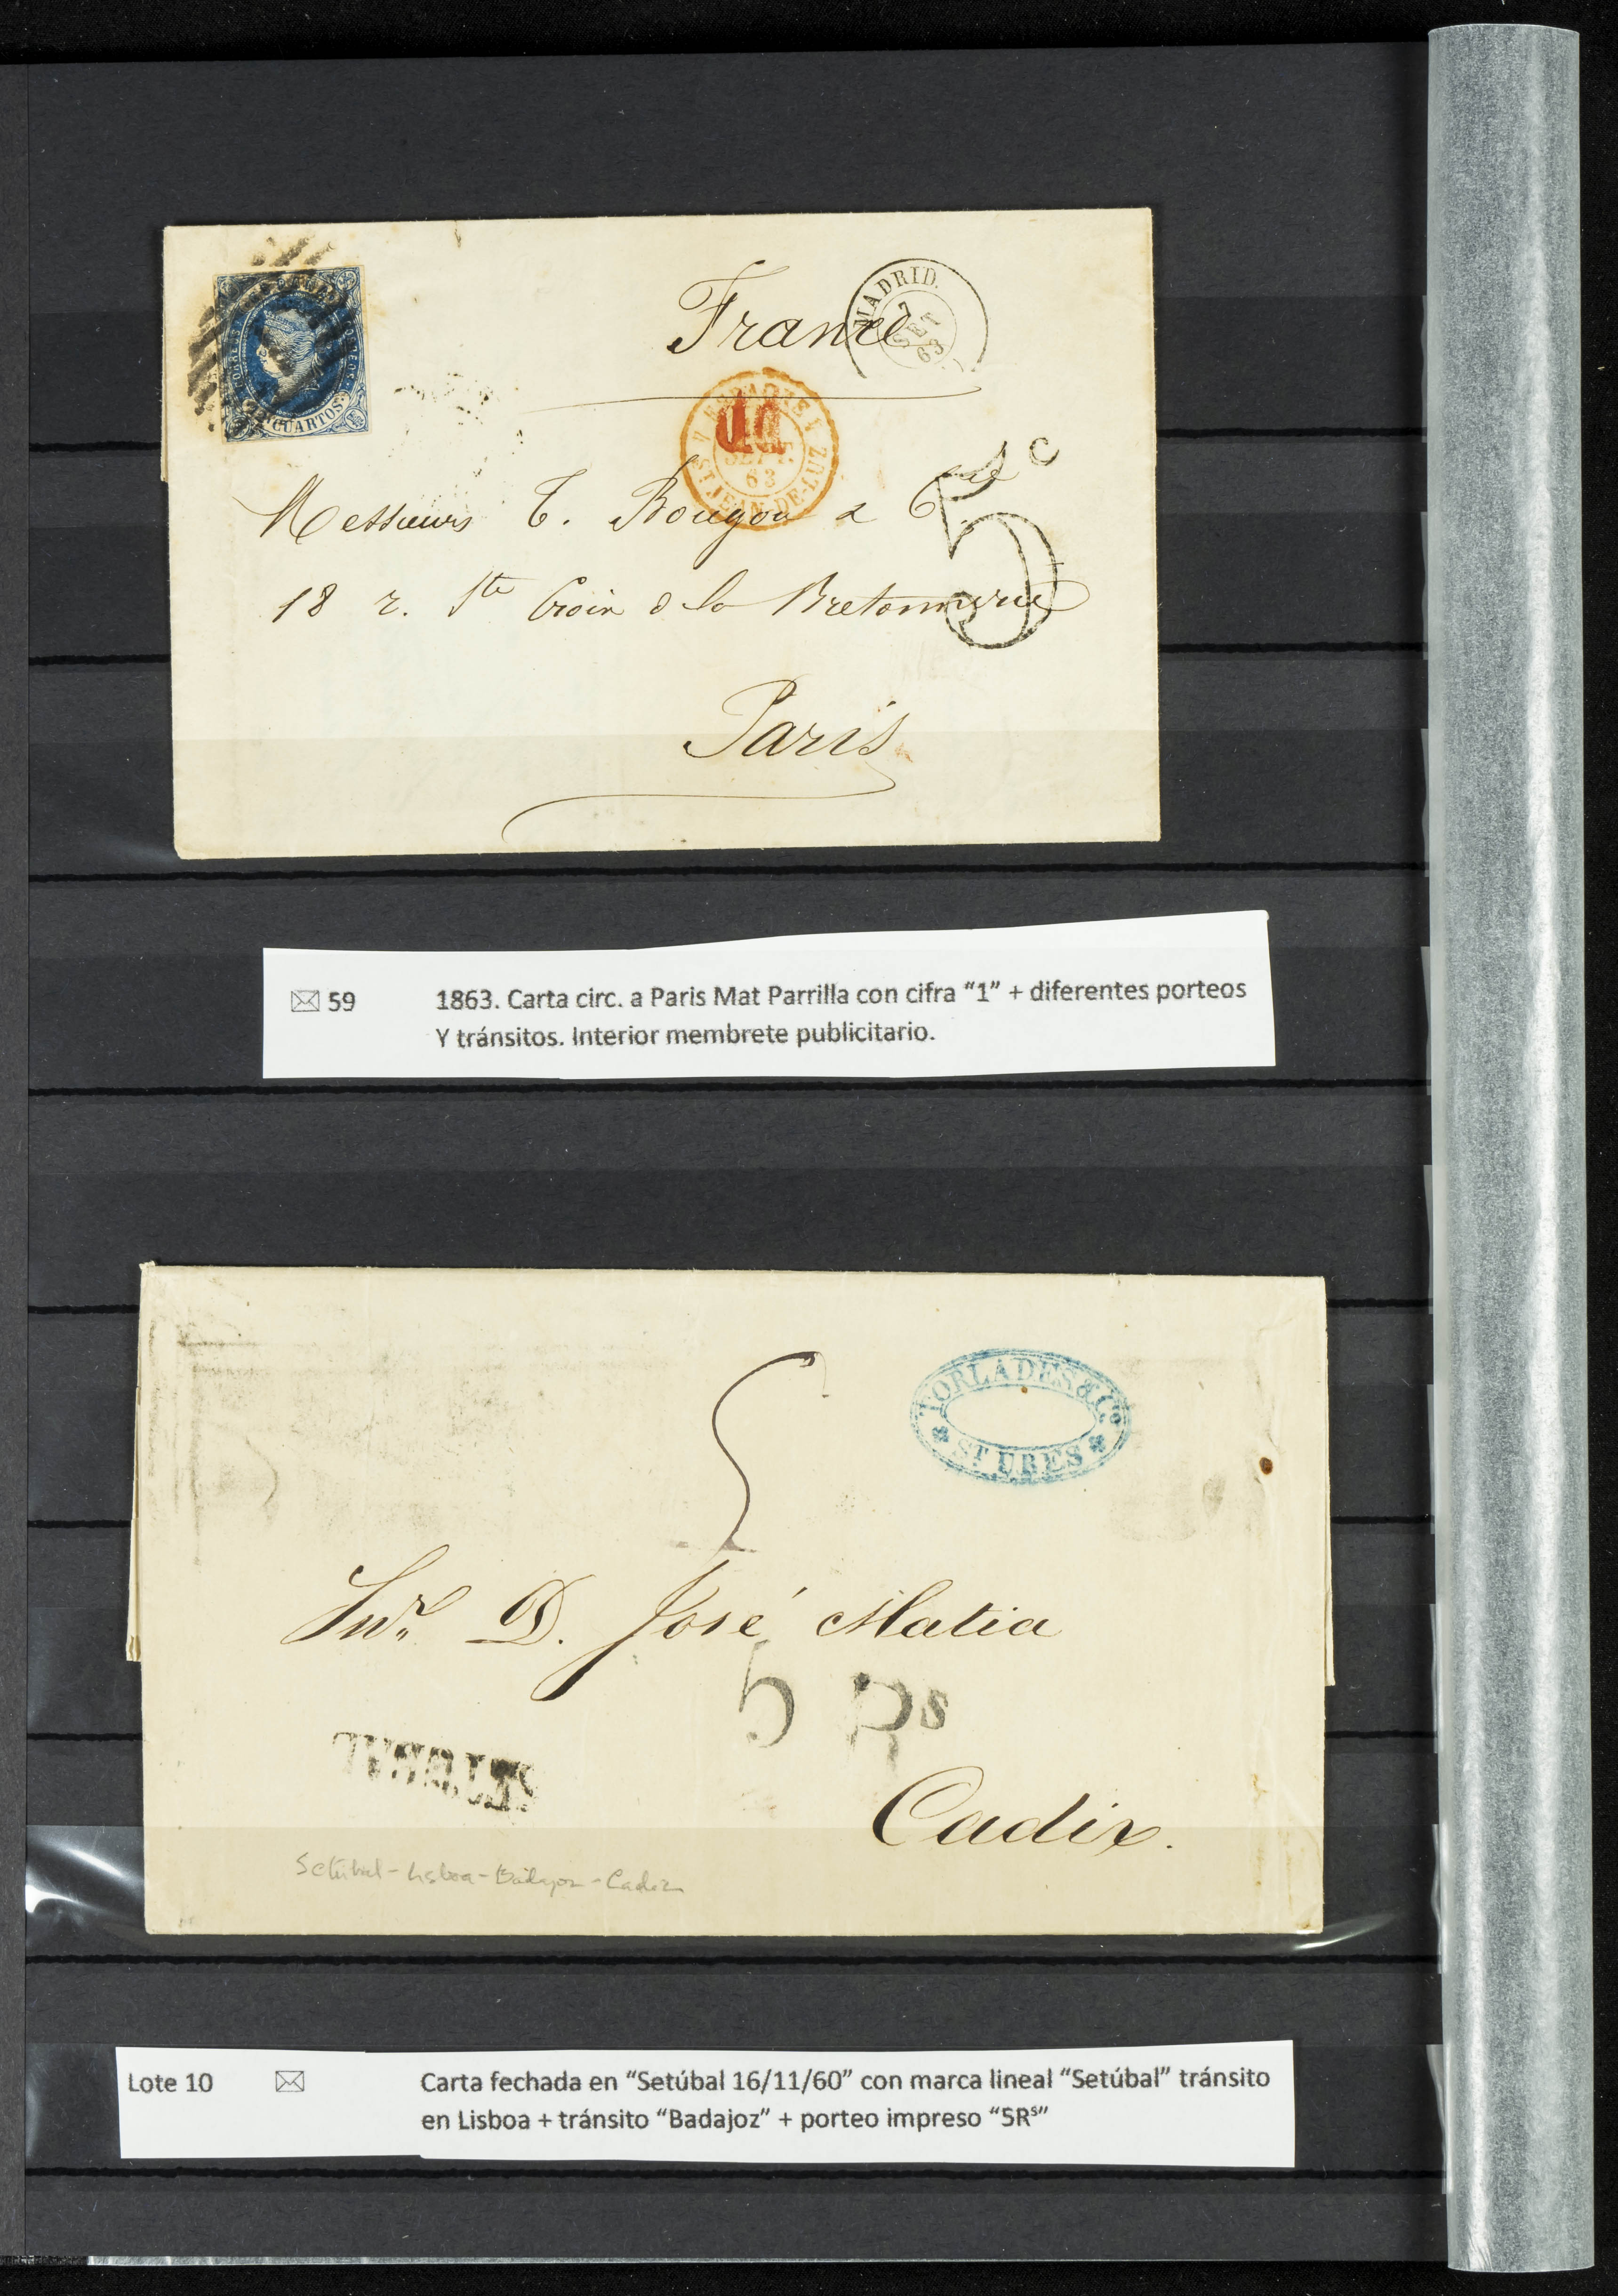 CORREOS
CUARTOS
France
MADRID.
7
SET
63
ESPAGNE
SEPT.
63
ST JEAN-DE-LUZ
5
Messieurs T. Bougon & Cie
18 r. Ste Croix d la Bretonnerie
Paris
59 1863. Carta circ. a Paris Mat Parrilla con cifra “1” + diferentes porteos
Y tránsitos. Interior membrete publicitario.
TORLADES & Co
ST UBES
5
Snr. D. José Matia
5 Rs
SETUBAL
Cadix.
Setúbal - Lisboa - Badajoz - Cadiz
Lote 10 Carta fechada en “Setúbal 16/11/60” con marca lineal “Setúbal” tránsito
en Lisboa + tránsito “Badajoz” + porteo impreso “5Rˢ”